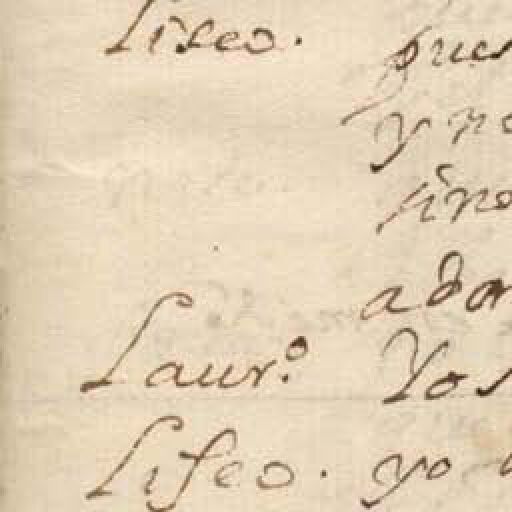 Liseo. pues
y no
sino
ador
Laur.º Yo
Liseo. yo